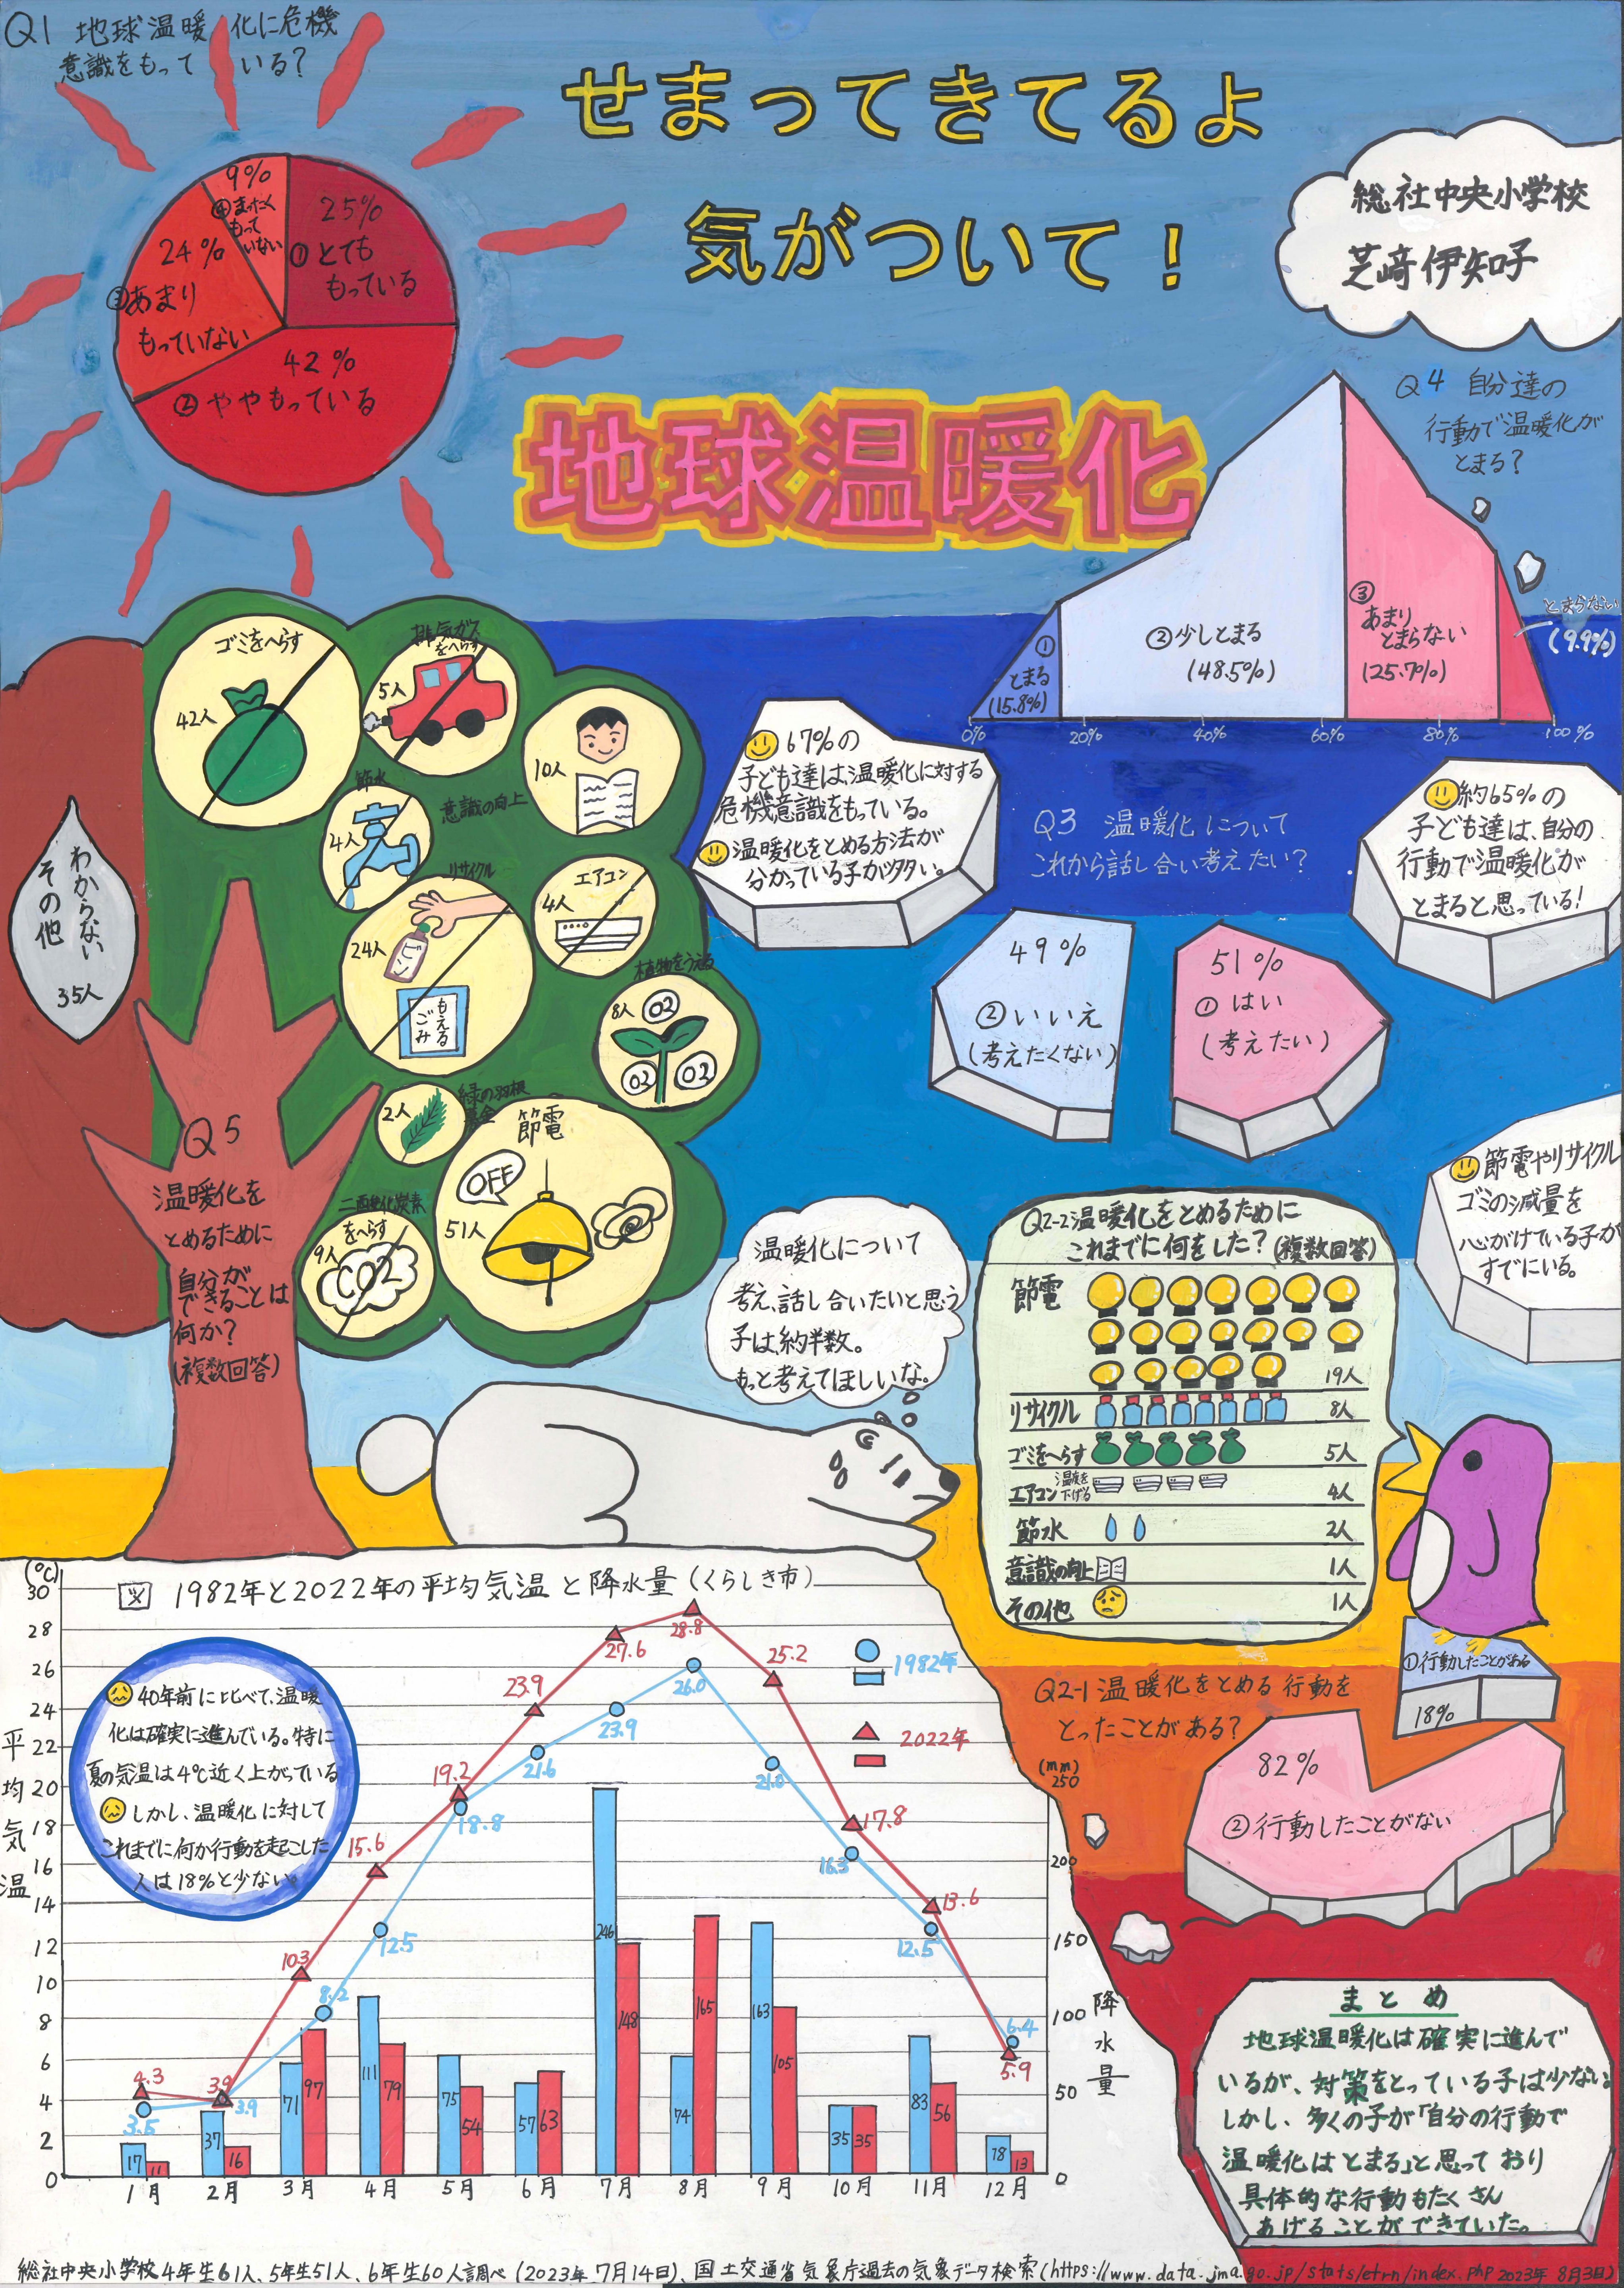 Q1 地球温暖化に危機
意識をもっている?
せまってきてるよ
気がついて!
地球温暖化
総社中央小学校
芝﨑伊知子
25%
①とても
もっている
42%
②ややもっている
24%
③あまり
もっていない
9%
④まったく
もって
いない
Q4 自分達の
行動で温暖化が
とまる?
①
とまる
(15.8%)
②少しとまる
(48.5%)
③
あまり
とまらない
(25.7%)
とまらない
(9.9%)
0% 20% 40% 60% 80% 100%
ゴミをへらす
42人
排気ガス
をへらす
5人
10人
意識の向上
節水
4人
リサイクル
24人
ビン
もえる
ごみ
エアコン
4人
植物をうえる
8人
O2
O2 O2
2人
緑の羽根
募金
節電
OFF
51人
二酸化炭素
をへらす
9人
CO2
わからない
その他
35人
Q5
温暖化を
とめるために
自分が
できることは
何か?
(複数回答)
67%の
子ども達は、温暖化に対する
危機意識をもっている。
温暖化をとめる方法が
分かっている子が多い。
Q3 温暖化について
これから話し合い考えたい?
49%
②いいえ
(考えたくない)
51%
①はい
(考えたい)
約65%の
子ども達は、自分の
行動で温暖化が
とまると思っている!
節電やリサイクル
ゴミの減量を
心がけている子が
すでにいる。
温暖化について
考え、話し合いたいと思う
子は、約半数。
もっと考えてほしいな。
Q2-2 温暖化をとめるために
これまでに何をした?(複数回答)
節電 19人
リサイクル 8人
ゴミをへらす 5人
エアコン 温度を下げる 4人
節水 2人
意識の向上 1人
その他 1人
Q2-1 温暖化をとめる行動を
とったことがある?
①行動したことがある
18%
82%
②行動したことがない
図 1982年と2022年の平均気温と降水量(くらしき市)
(℃)
30
28
26
24
22
20
18
16
14
12
10
8
6
4
2
0
平均気温
40年前に比べて、温暖
化は確実に進んでいる。特に
夏の気温は4℃近く上がっている
しかし、温暖化に対して
これまでに何か行動を起こした
人は18%と少ない。
1982年
2022年
4.3 3.9 10.3 15.6 19.2 23.9 27.6 28.8 25.2 17.8 13.6 5.9
3.5 3.9 8.2 12.5 18.8 21.6 23.9 26.0 21.0 16.3 12.5 6.4
17 11 37 16 71 97 111 79 75 54 57 63 246 148 74 165 163 105 35 35 83 56 18 13
1月 2月 3月 4月 5月 6月 7月 8月 9月 10月 11月 12月
(mm)
250
200
150
100
50
0
降水量
まとめ
地球温暖化は確実に進んで
いるが、対策をとっている子は少ない。
しかし、多くの子が「自分の行動で
温暖化はとまる」と思っており
具体的な行動もたくさん
あげることができていた。
総社中央小学校4年生61人、5年生51人、6年生60人調べ(2023年7月14日)、国土交通省気象庁過去の気象データ検索(https://www.data.jma.go.jp/stats/etrn/index.php 2023年8月3日)